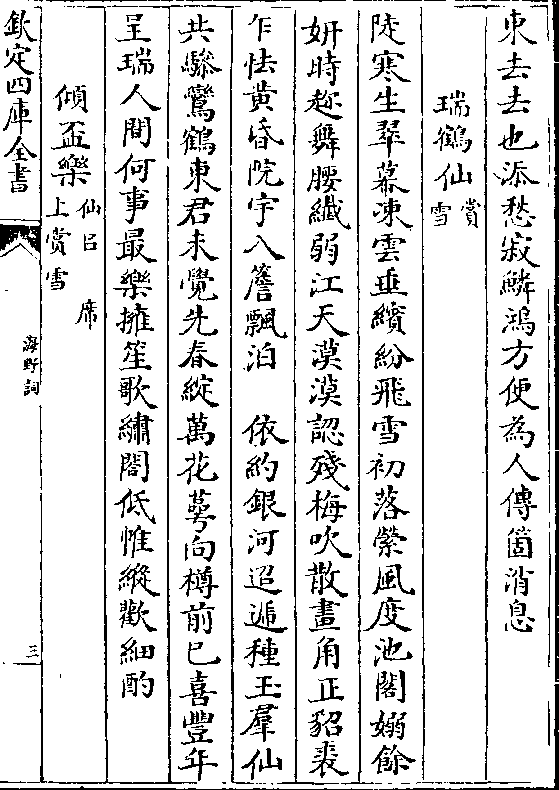 東去去也添愁寂鱗鴻方便為人傳箇消息
瑞鶴仙賞雪
陡寒生翠幕凍雲垂繽紛飛雪初落縈風度池閣嫋餘
妍時趂舞腰纖弱江天漠漠認殘梅吹散畫角正貂裘
乍怯黄昏院宇入簷飄泊　依約銀河迢遞種玉羣仙
共驂鸞鶴東君未覺先春綻萬花萼向樽前已喜豐年
呈瑞人間何事最樂擁笙歌繡閣低帷縱歡細酌
傾盃樂仙呂　席上賞雪
欽定四庫全書
海野詞
三